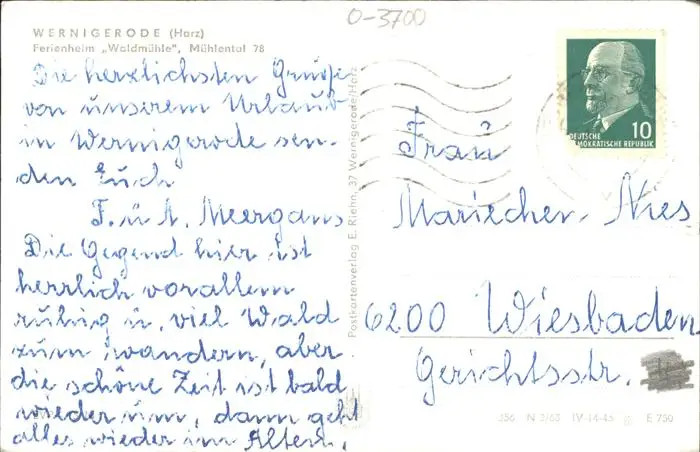 O-3700
WERNIGERODE (Harz)
Ferienheim „Waldmühle", Mühlental 78
Die herzlichsten Grüße
von unserem Urlaub
in Wernigerode sen-
den Euch
F. u. A. Meergans
Die Gegend hier ist
herrlich vorallem
ruhig u. viel Wald
zum wandern, aber
die schöne Zeit ist bald
wieder um, dann geht
alles wieder im Altem.
Postkartenverlag E. Riehn, 37 Wernigerode/Harz
10
DEUTSCHE
DEMOKRATISCHE REPUBLIK
Frau
Mariechen Nies
6200 Wiesbaden
Gerichtsstr.
556 N 3/63 IV-14-45 E 750